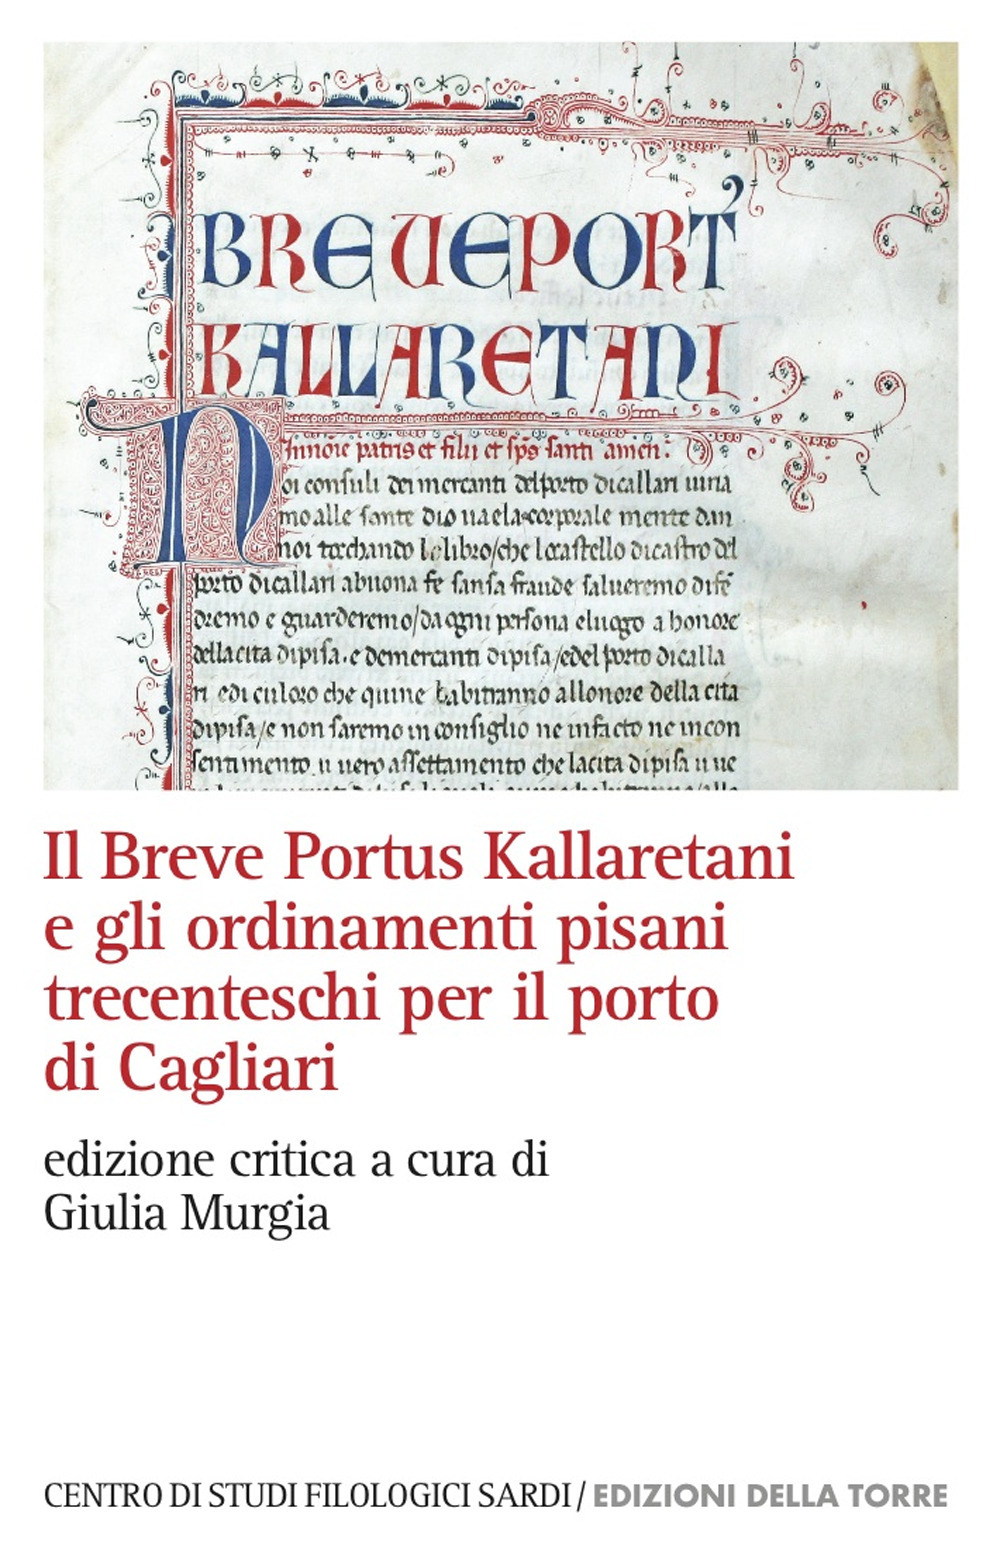 BREVE PORT'
KALLARETANI
In noīe patris et filii et sp̄s santi amen.
Noi consuli dei mercanti delporto dicallari iuria
mo alle sante dio uaela corporale mente dan
noi tocchando lo libro/che locastello dicastro del
porto dicallari abuona fe sansa fraude salueremo difē
dremo e guarderemo/da ogni persona eluogo a honore
dellacita dipisa.e demercanti dipisa/edel porto dicalla
ri edi culoro che quine habitranno allonore della cita
dipisa/e non saremo in consiglio ne infacto ne incon
sentimento u uero assettamento che lacita dipisa u ue
Il Breve Portus Kallaretani
e gli ordinamenti pisani
trecenteschi per il porto
di Cagliari
edizione critica a cura di
Giulia Murgia
CENTRO DI STUDI FILOLOGICI SARDI / EDIZIONI DELLA TORRE